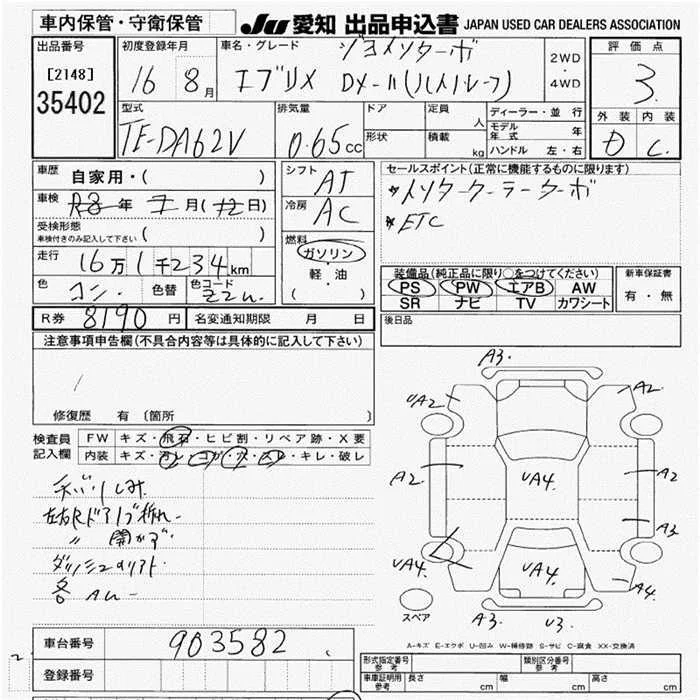 車内保管・守衛保管
JU 愛知 出品申込書 JAPAN USED CAR DEALERS ASSOCIATION
出品番号
[2148]
35402
初度登録年月
16 8月
車名・グレード
ジョインターボ
エブリイ DX-II(ハイルーフ)
2WD
・
4WD
評価点
3
外装 内装
D C
型式
TE-DA62V
排気量
0.65cc
ドア
形状
定員 人
積載 kg
ディーラー・並行
モデル年式 年
ハンドル 左・右
車歴 自家用・( )
車検 R8年 7月(12日)
受検形態
車検付きのみ記入して下さい ( )
走行
16万1千234km
色 コン. 色替 色コード ZZn
シフト AT
冷房 AC
燃料
ガソリン
・
軽・油
( )
セールスポイント(正常に機能するものに限ります)
*インタークーラーターボ
*ETC
装備品(純正品に限り○をつけてください)
PS PW エアB AW
SR ナビ TV カワシート
新車保証書
有・無
R券 8190円 名変通知期限 月 日
後日品
注意事項申告欄(不具合内容等は具体的に記入して下さい)
修復歴 有〔箇所 〕
検査員
記入欄
FW キズ・飛石・ヒビ割・リペア跡・X要
内装 キズ・汚レ・コゲ・穴・スレ・キレ・破レ
左右Rドアノブ折れ
〃 開かず
各AU
A3.
UA2
A2
A2
A2
UA4
A3
UA4.
UA4
A4
スペア
A3
U3.
A-キズ E-エクボ U-凹み W-補修跡 S-サビ C-腐食 XX-交換済
車台番号 903582
登録番号
型式指定番号
参考
類別区分番号
参考
車庫証明用
参考
長さ cm 幅 cm 高さ cm